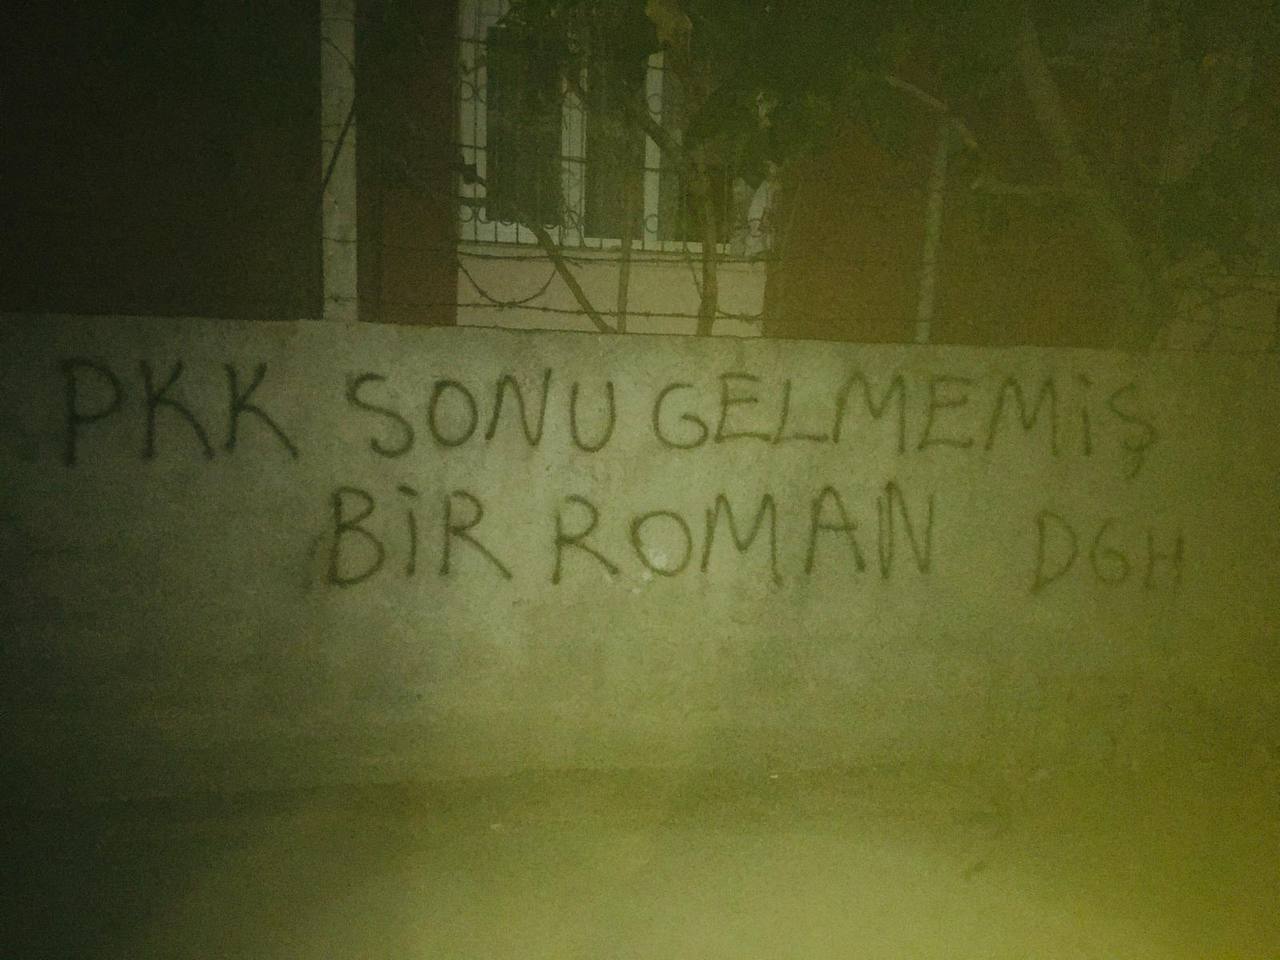 PKK SONU GELMEMİŞ
BİR ROMAN DGH